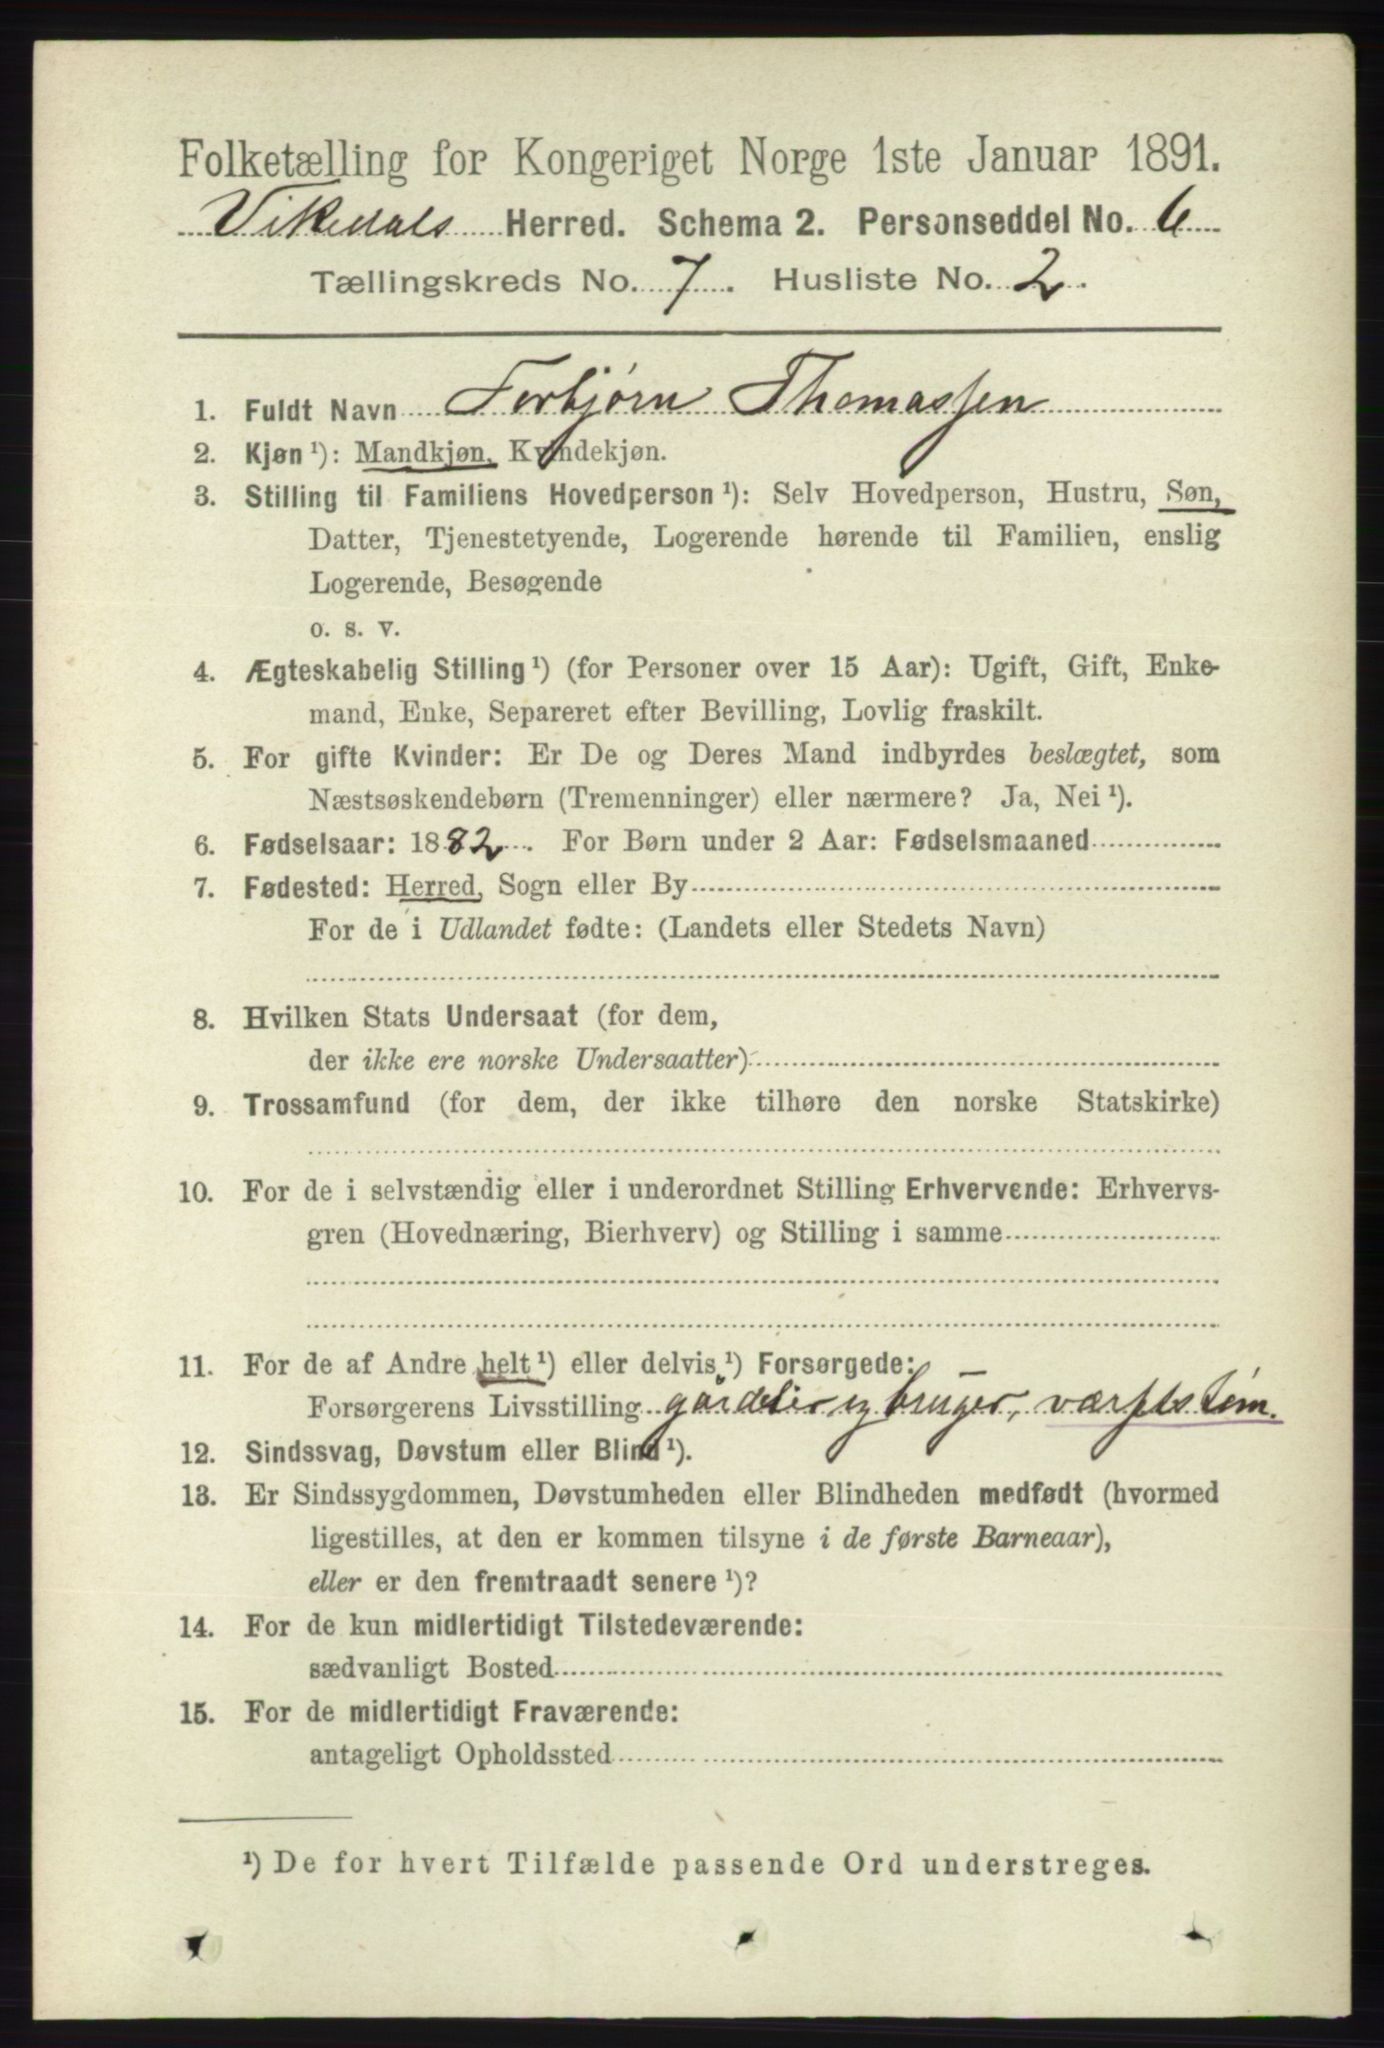 Folketælling for Kongeriget Norge 1ste Januar 1891.
Vikedals Herred. Schema 2. Personseddel No. 6
Tællingskreds No. 7. Husliste No. 2.
1. Fuldt Navn Torbjørn Thomassen
2. Kjøn ¹): Mandkjøn, Kvindekjøn.
3. Stilling til Familiens Hovedperson ¹): Selv Hovedperson, Hustru, Søn,
Datter, Tjenestetyende, Logerende hørende til Familien, enslig
Logerende, Besøgende
o. s. v.
4. Ægteskabelig Stilling ¹) (for Personer over 15 Aar): Ugift, Gift, Enke-
mand, Enke, Separeret efter Bevilling, Lovlig fraskilt.
5. For gifte Kvinder: Er De og Deres Mand indbyrdes beslægtet, som
Næstsøskendebørn (Tremenninger) eller nærmere? Ja, Nei ¹).
6. Fødselsaar: 1882. For Børn under 2 Aar: Fødselsmaaned
7. Fødested: Herred, Sogn eller By
For de i Udlandet fødte: (Landets eller Stedets Navn)
8. Hvilken Stats Undersaat (for dem,
der ikke ere norske Undersaatter)
9. Trossamfund (for dem, der ikke tilhøre den norske Statskirke)
10. For de i selvstændig eller i underordnet Stilling Erhvervende: Erhvervs-
gren (Hovednæring, Bierhverv) og Stilling i samme
11. For de af Andre helt ¹) eller delvis ¹) Forsørgede:
Forsørgerens Livsstilling gårdeier og bruger, værftstøm.
12. Sindssvag, Døvstum eller Blind ¹).
13. Er Sindssygdommen, Døvstumheden eller Blindheden medfødt (hvormed
ligestilles, at den er kommen tilsyne i de første Barneaar),
eller er den fremtraadt senere ¹)?
14. For de kun midlertidigt Tilstedeværende:
sædvanligt Bosted
15. For de midlertidigt Fraværende:
antageligt Opholdssted
¹) De for hvert Tilfælde passende Ord understreges.